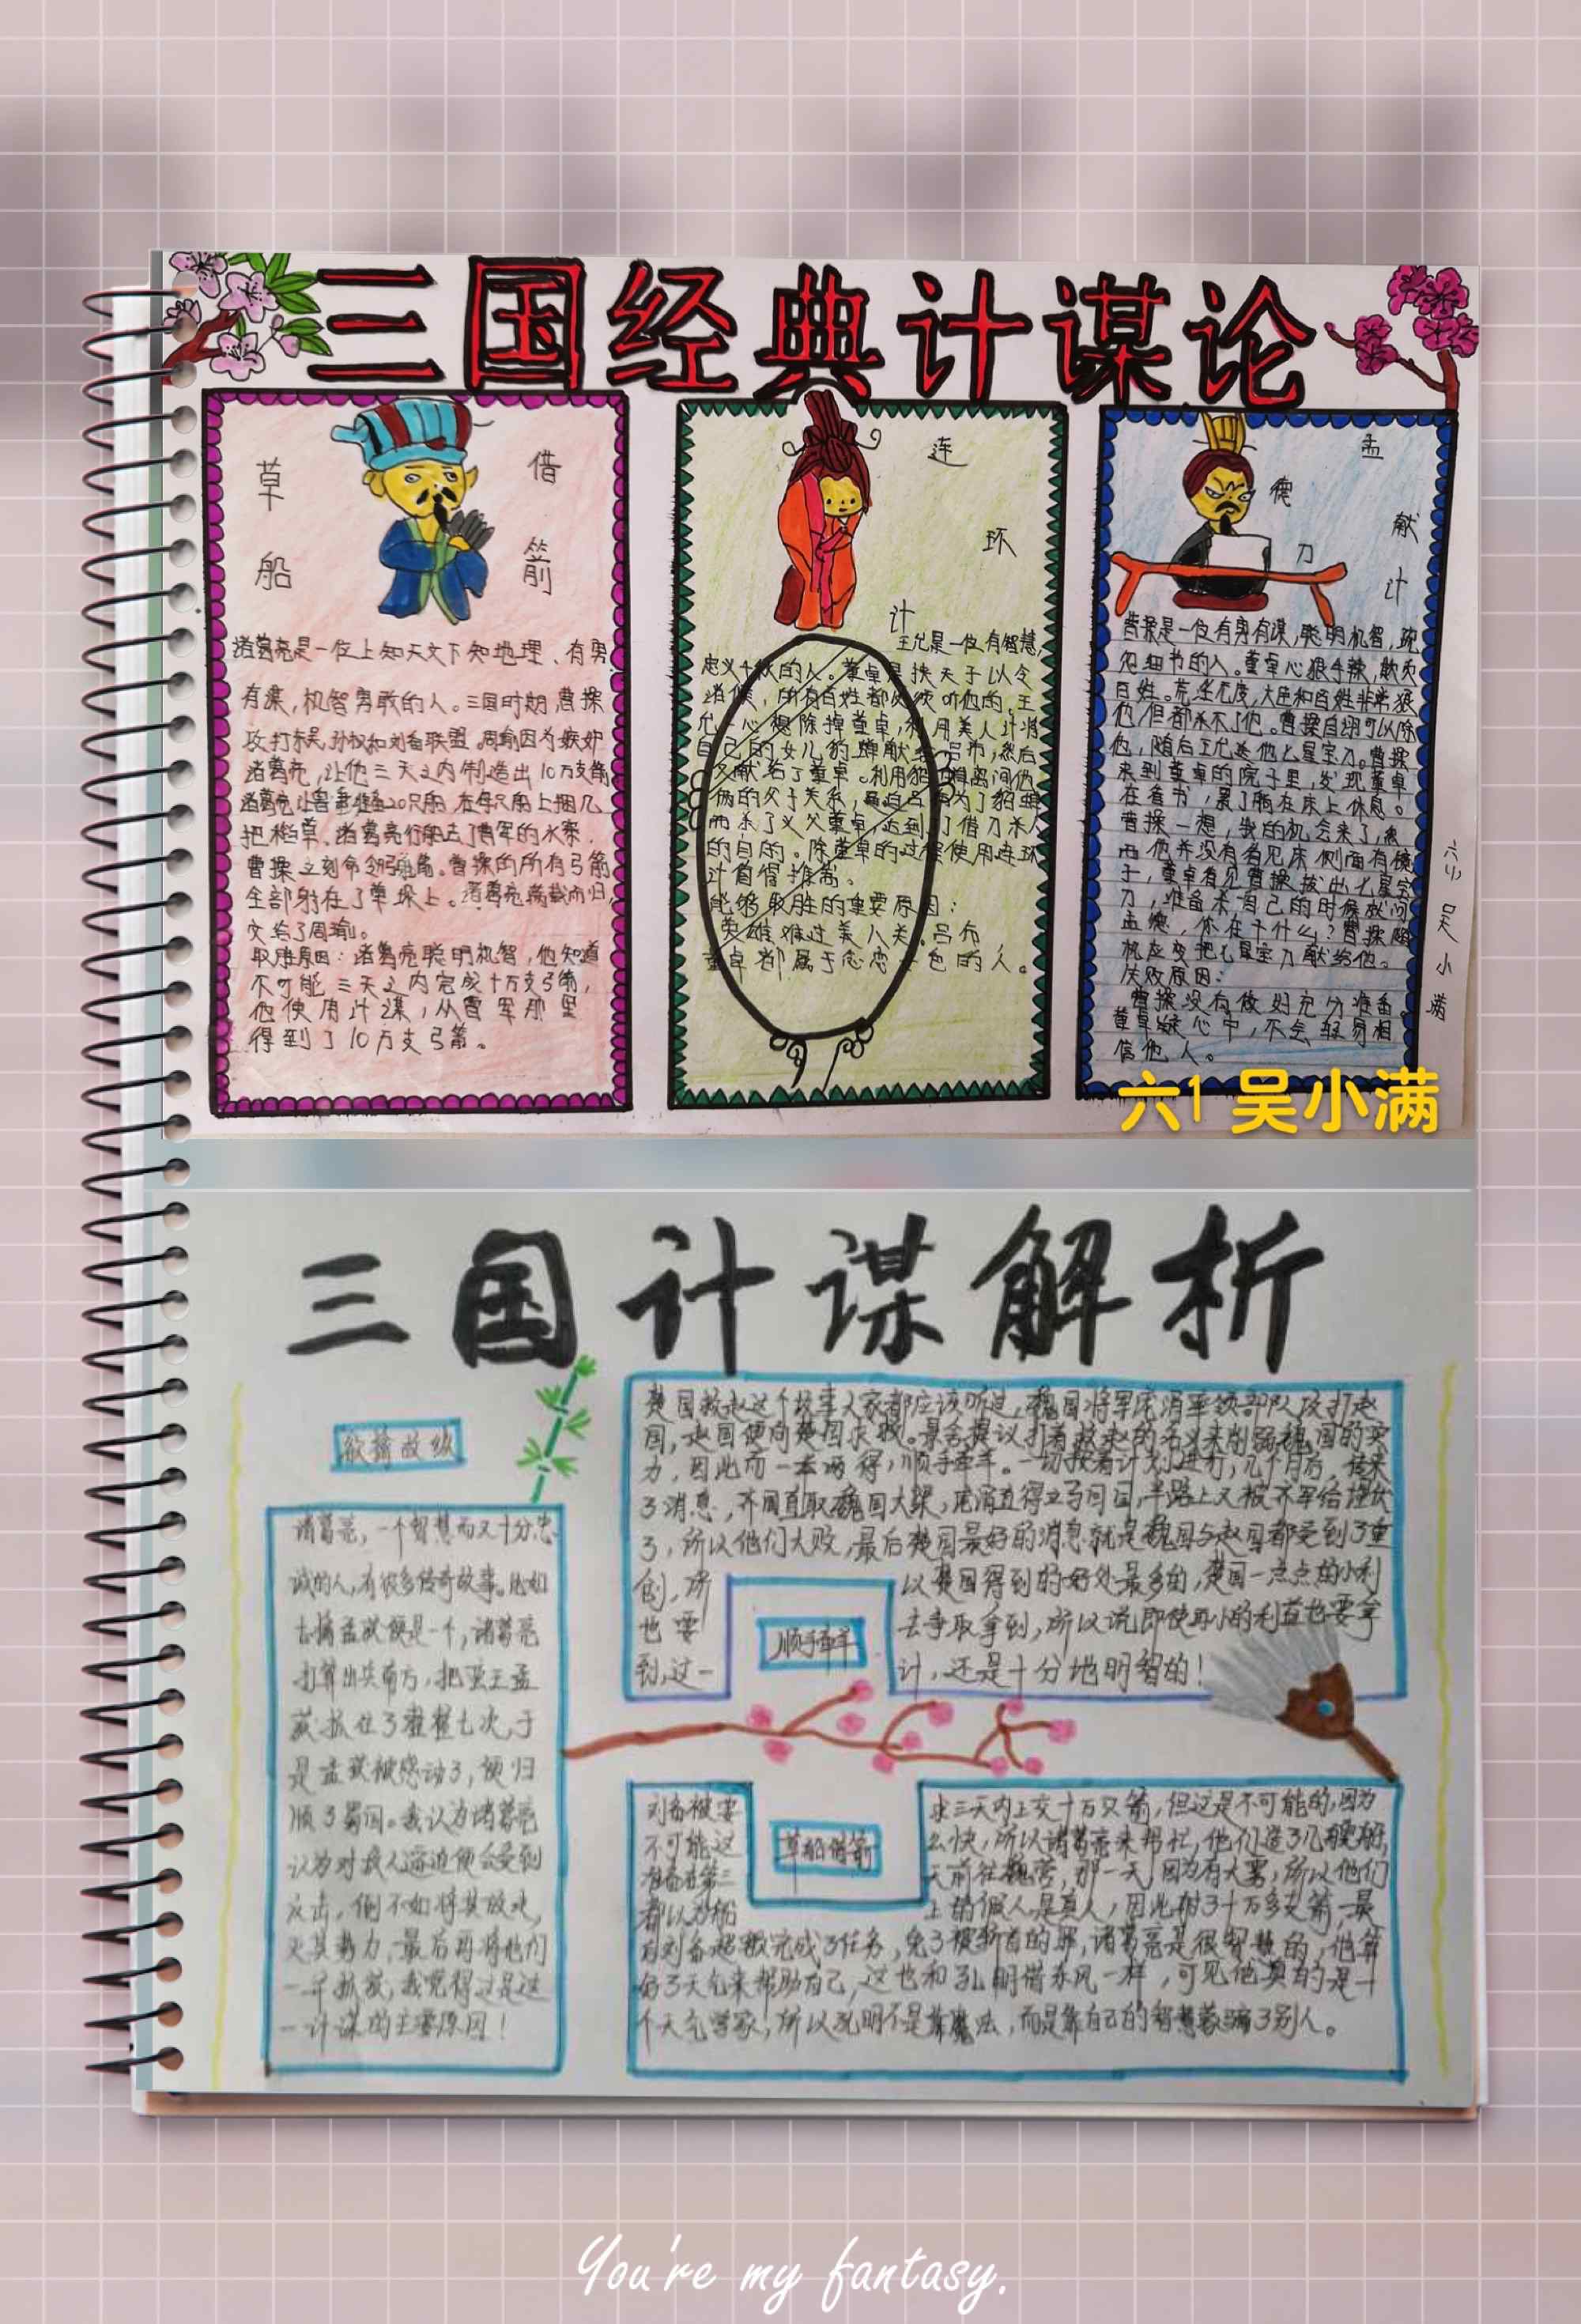 三国经典计谋论
草船借箭
诸葛亮是一位上知天文下知地理、有勇
有谋,机智勇敢的人。三国时期,曹操
攻打东吴,孙权和刘备联盟。周瑜因为嫉妒
诸葛亮,让他三天之内制造出10万支箭
诸葛亮让鲁肃准备20只船,在每只船上捆几
把稻草、诸葛亮行船去了曹军的水寨,
曹操立刻命令弓弩。曹操的所有弓箭
全部射在了草垛上。诸葛亮满载而归,
交给了周瑜。
取胜原因:诸葛亮聪明机智,他知道
不可能三天之内完成十万支弓箭,
他使用计谋,从曹军那里
得到了10万支弓箭。
连环计
王允是一位有智慧,
忠义千秋的人。董卓是挟天子以令
诸侯,所有百姓都必须听他的。王
允一心想除掉董卓,利用美人计将
自己的女儿貂蝉献给吕布,然后
又献给了董卓。利用貂蝉离间他
俩的父子关系,最后吕布为了貂蝉
而杀了义父董卓,达到了借刀杀人
的目的。除董卓的过程使用连环
计首得推荐。
能够取胜的重要原因:
英雄难过美人关,吕布
董卓都属于恋恋女色的人。
孟德献刀计
曹操是一位有勇有谋,聪明机智,观
知细节的人。董卓心狠手辣,欺负
百姓。荒淫无度,大臣和百姓非常狠
他,但都杀不了他。曹操自翊可以除
他,随后王允送他七星宝刀。曹操
来到董卓的院子里,发现董卓
在看书,累了躺在床上休息。
曹操一想,我的机会来了,然
而他并没有看见床侧面有镜
子,董卓看见曹操拔出七星宝
刀,准备杀自己的时候就问
孟德,你在干什么?曹操随
机应变把七星宝刀献给他。
失败原因:
曹操没有做好充分准备。
董卓疑心中,不会轻易相
信他人。
六(1)吴小满
六1 吴小满
三国计谋解析
欲擒故纵
诸葛亮,一个智慧而又十分忠
诚的人,有很多传奇故事。比如
七擒孟获便是一个,诸葛亮
打算出兵南方,把蛮王孟
获抓住了整整七次,于
是孟获被感动了,便归
顺了蜀国。我认为诸葛亮
认为对敌人逼迫便会受到
反击,倒不如将其放走,
灭其势力,最后再将他们
一举抓获,我觉得这是这
一计谋的主要原因!
顺手牵羊
楚国救赵这个故事大家都应该听过,魏国将军庞涓率领部队攻打赵
国,赵国便向楚国求救。景舍提议打着救赵的名义来削弱魏国的实
力,因此而一本两得,顺手牵羊。一切按着计划进行,几个月后,传来
了消息,齐国直取魏国大梁,庞涓直得立马回国,半路上又被齐军给埋伏
了,所以他们大败,最后楚国最好的消息就是魏国与赵国都受到了重
创,所以楚国得到的好处最多的,楚国一点点的小利
也要去争取拿到,所以说即使再小的利益也要拿
到,这一计,还是十分地明智的!
草船借箭
刘备被要求三天内上交十万只箭,但这是不可能的,因为
不可能这么快,所以诸葛亮来帮忙,他们造了几艘船,
准备在第三天前往魏营,那一天,因为有大雾,所以他们
都以为船上的假人是真人,因此射了十万多支箭,最
后刘备超额完成了任务,免了被斩首的罪,诸葛亮是很智慧的,他算
好了天气来帮助自己,这也和孔明借东风一样,可见他真的是一
个天气学家,所以孔明不是靠魔法,而是靠自己的智慧蒙骗了别人。
You're my fantasy.